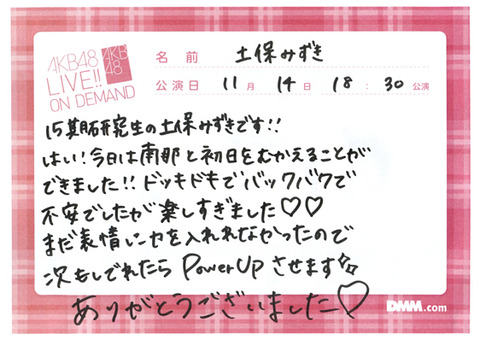 AKB48
LIVE!!
ON DEMAND
AKB
48
名前 土保みずき
公演日 11月14日 18:30公演
15期研究生の土保みずきです!!
はい!今日は南那と初日をむかえることが
できました!!ドッキドキでバックバクで
不安でしたが楽しすぎました♡♡
まだ表情に力を入れれなかったので
次もしでれたらPowerUpさせます☆
ありがとうございました♡
DMM.com